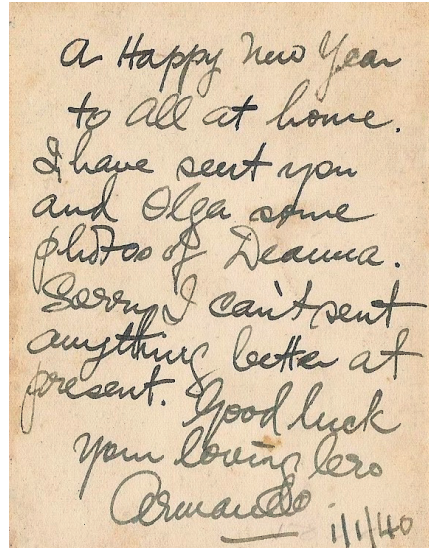 A Happy New Year
to all at home.
I have sent you
and Olga some
photos of Deanna.
Sorry I can't sent
anything better at
present. Good luck
your loving bro
Armando.
1/1/40